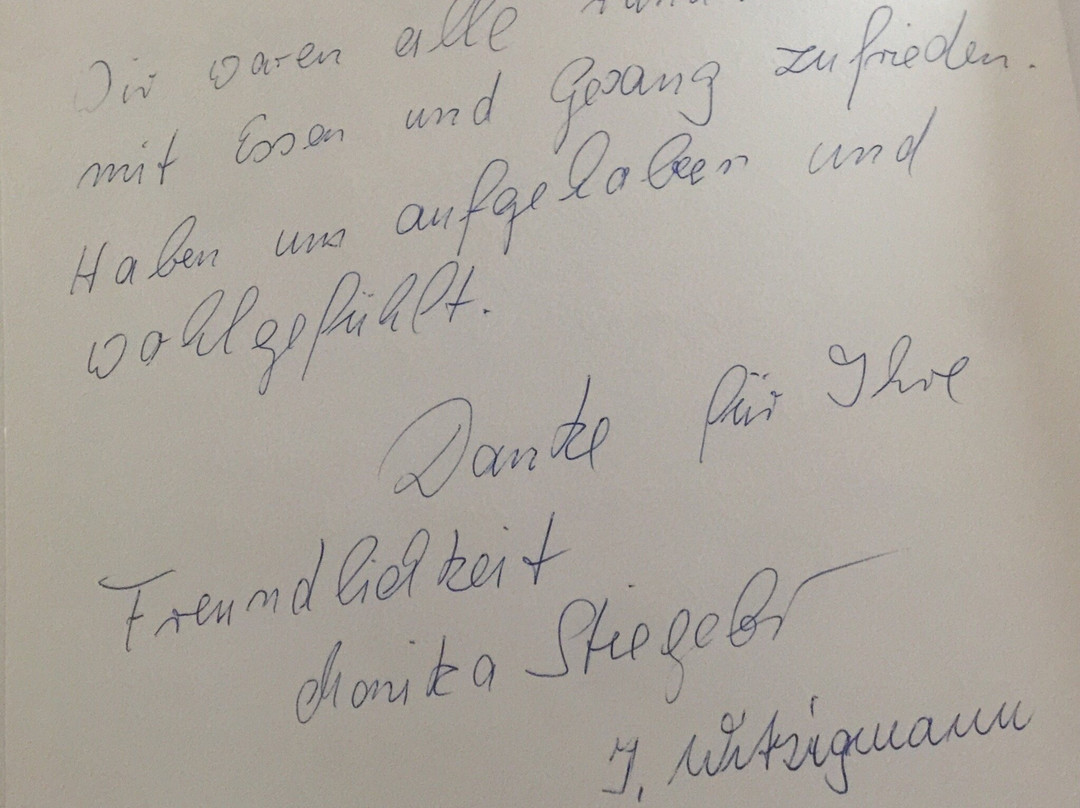 Wir waren alle
mit Essen und Gesang zufrieden.
Haben uns aufgehoben und
wohlgefühlt.
Danke für Ihre
Freundlichkeit
Monika
J. Witzigmann